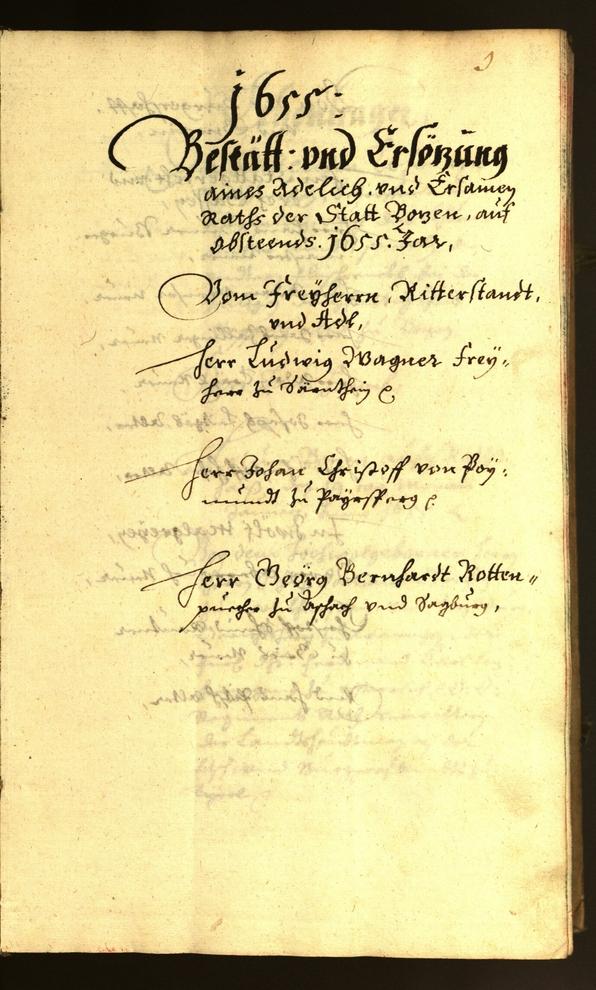 1655:
Bestätt: vnd Ersözung
aines Adelich. vnd Ersamen
Raths der Statt Bozen, auf
obsteends. 1655. Jar,
Vom Freyherrn, Ritterstandt,
vnd Adl,
Herr Ludwig Wagner Frey„
herr zu Särnthein
Herr Johan Christoff von Pöy„
mundt zu Payrsperg
Herr Geörg Bernhardt Rotten„
puecher zu Aschach vnd Sagburg,